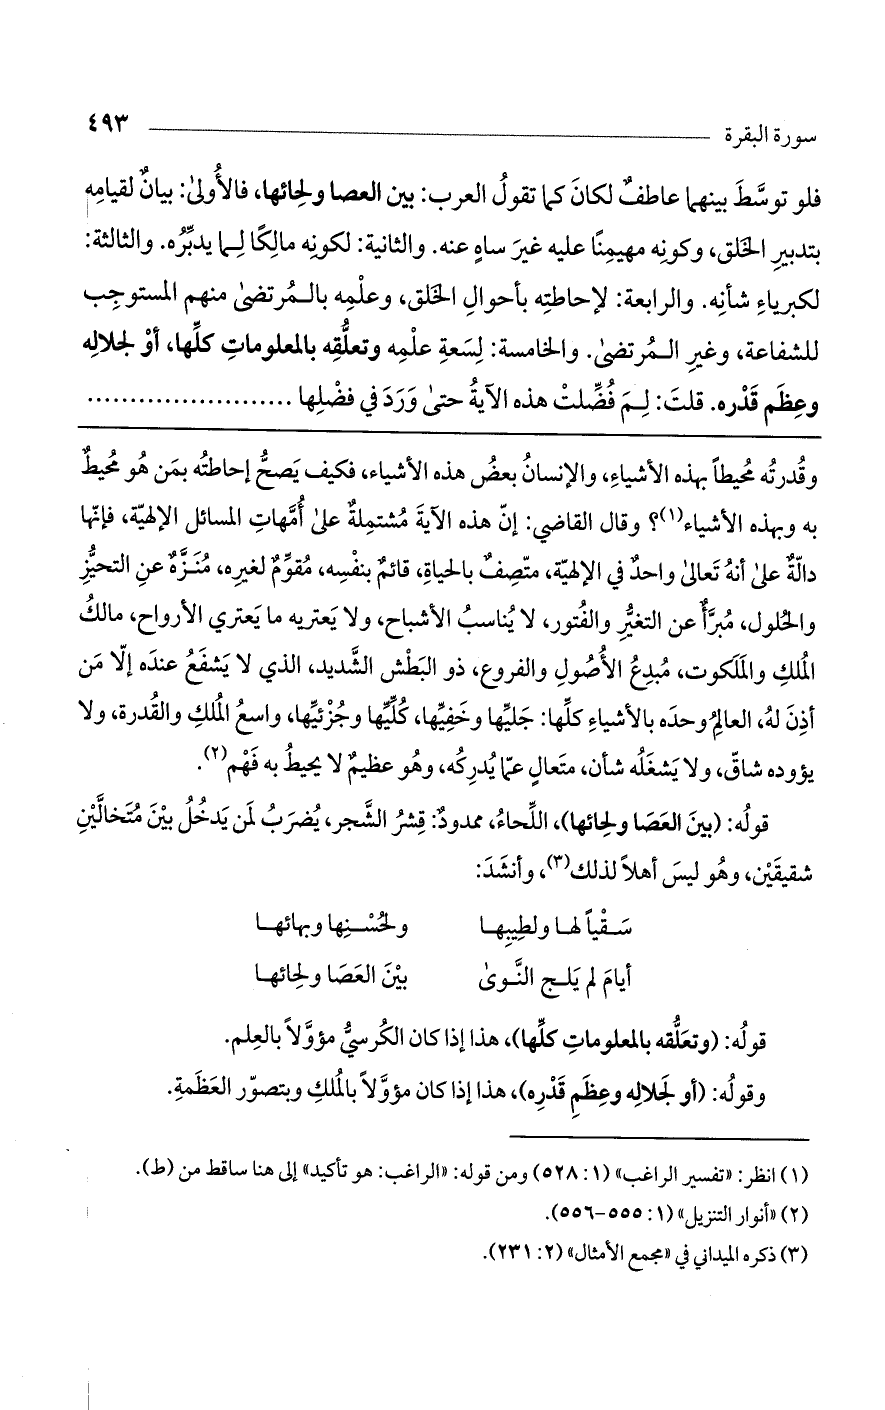 سورة البقرة ٤٩٣
فلو توسَّطَ بينهما عاطفٌ لكانَ كما تقولُ العرب: بين العصا ولِحائها، فالأُولىٰ: بيانٌ لقيامِه
بتدبيرِ الخَلق، وكونِه مهيمِنًا عليه غيرَ ساهٍ عنه. والثانية: لكونِه مالِكًا لِما يدبِّرُه. والثالثة:
لكبرياءِ شأنِه. والرابعة: لإحاطتِه بأحوالِ الخَلق، وعلْمِه بالـمُرتضىٰ منهم المستوجِب
للشفاعة، وغيرِ الـمُرتضىٰ. والخامسة: لِسَعةِ علْمِه وتعلُّقِه بالمعلوماتِ كلِّها، أوْ لجلالِه
وعِظَمِ قَدْرِه. قلتَ: لِـمَ فُضِّلتْ هذه الآيةُ حتىٰ وَرَدَ في فضْلِها ........................
وقُدرتُه مُحيطاً بهذه الأشياءِ، والإنسانُ بعضُ هذه الأشياء، فكيف يَصحُّ إحاطتُه بمَن هُو مُحيطٌ
به وبهذه الأشياء(١)؟ وقال القاضي: إنّ هذه الآيةَ مُشتمِلةٌ علىٰ أُمَّهاتِ المسائل الإلهيّة، فإنّها
دالّةٌ علىٰ أنهُ تَعالىٰ واحدٌ في الإلهيّة، متّصِفٌ بالحياةِ، قائمٌ بنفْسِه، مُقوِّمٌ لغيرِه، مُنَـزَّهٌ عنِ التحيُّزِ
والحُلول، مُبرَّأٌ عن التغيُّرِ والفُتور، لا يُناسبُ الأشباح، ولا يَعتريه ما يَعتري الأرواح، مالكُ
المُلكِ والمَلَكوت، مُبدِعُ الأُصُولِ والفروع، ذو البَطْش الشَّديد، الذي لا يَشفَعُ عندَه إلّا مَن
أذِنَ لهُ، العالمُ وحدَه بالأشياءِ كلِّها: جَليِّها وخَفِيِّها، كُلِّيِّها وجُزْئيِّها، واسعُ المُلكِ والقُدرة، ولا
يؤوده شاقّ، ولا يَشغَلُه شأن، متَعالٍ عمّا يُدرِكُه، وهُو عظيمٌ لا يحيطُ به فَهْم(٢).
قولُه: (بينَ العَصَا ولِحائها)، اللِّحاءُ، ممدودٌ: قِشرُ الشَّجر، يُضرَبُ لمَن يَدخُلُ بيْنَ مُتَخالَّيْنِ
شقيقَيْن، وهُو ليسَ أهلاً لذلك(٣)، وأنشَدَ:
سَـقْياً لهـا ولطِيبِهـا ولحُسْـنِها وبهائهـا
أيامَ لم يَلـج النَّـوىٰ بيْنَ العَصَا ولحائهـا
قولُه: (وتعَلُّقِه بالمعلوماتِ كلِّها)، هذا إذا كان الكُرسيُّ مؤوَّلاً بالعِلم.
وقولُه: (أو لجَلالِه وعِظَمِ قَدْرِه)، هذا إذا كان مؤوَّلاً بالمُلكِ وبتصوّر العَظَمةِ.
(١) انظر: «تفسير الراغب» (١: ٥٢٨) ومن قوله: «الراغب: هو تأكيد» إلى هنا ساقط من (ط).
(٢) «أنوار التنزيل» (١: ٥٥٥-٥٥٦).
(٣) ذكره الميداني في «مجمع الأمثال» (٢: ٢٣١).